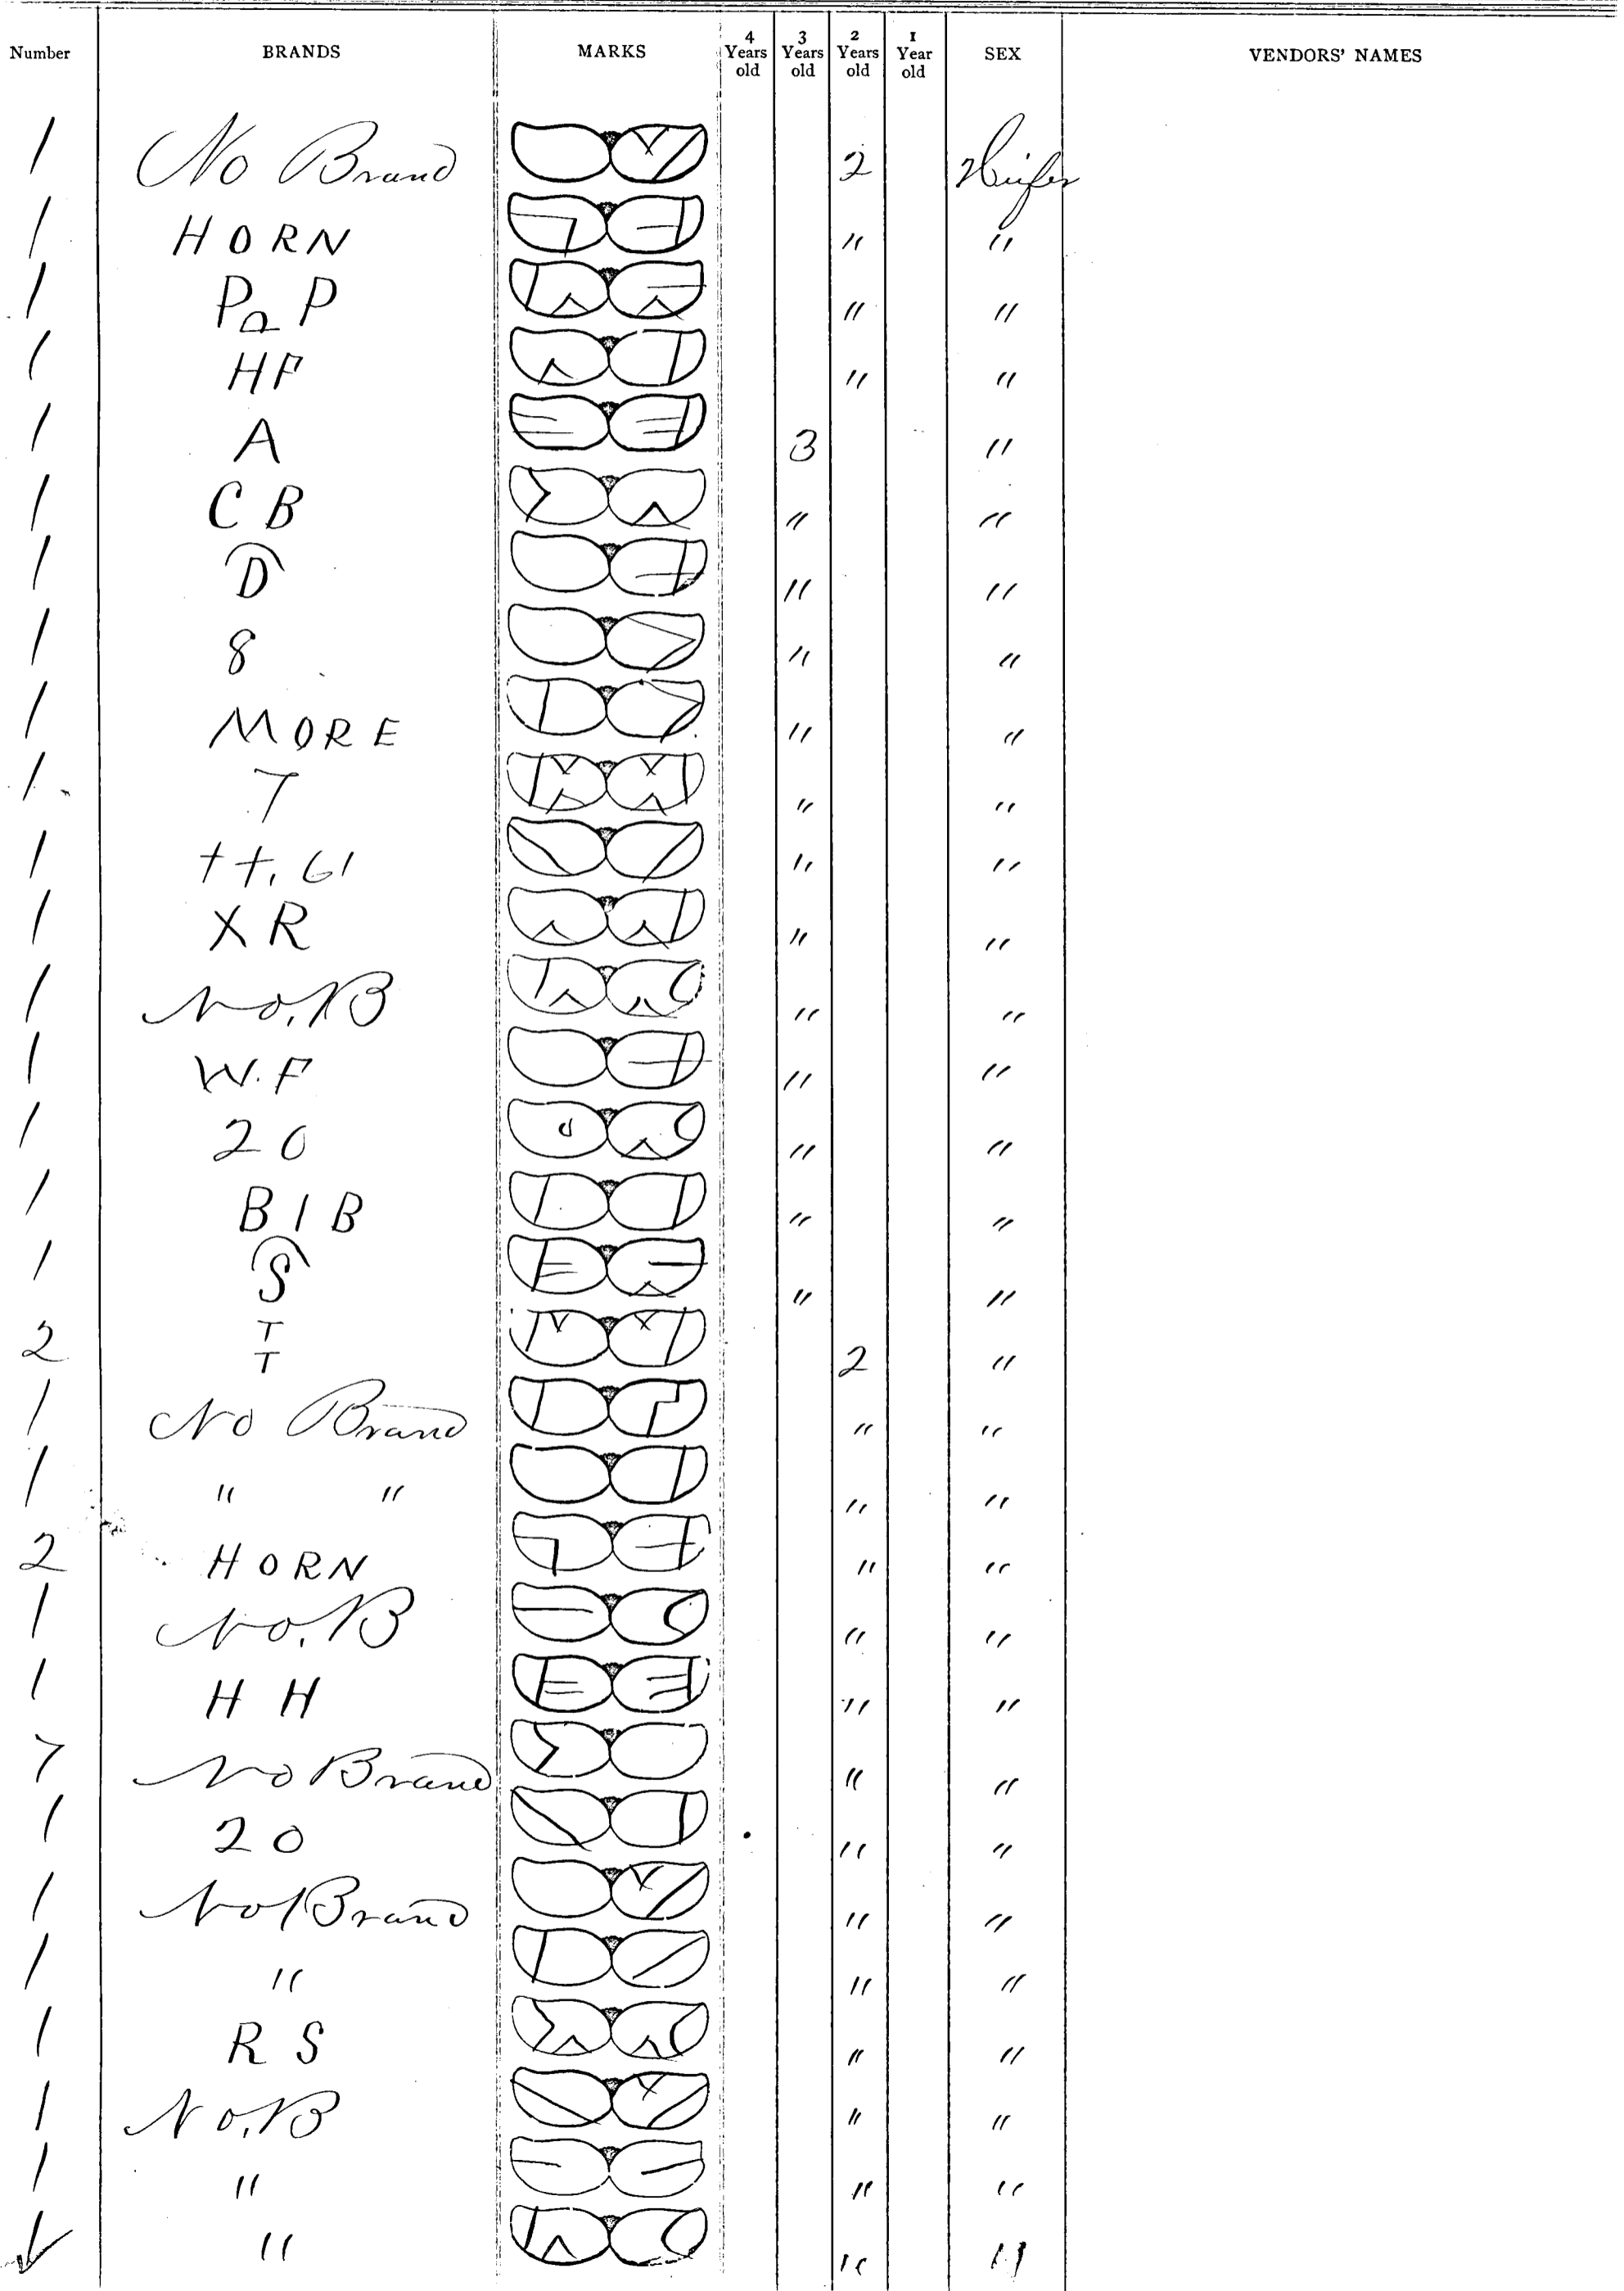 Number BRANDS MARKS 4 Years old 3 Years old 2 Years old 1 Year old SEX VENDORS' NAMES
1 No Brand 2 Heifer
1 HORN " "
1 P P " "
1 HF " "
1 A 3 "
1 C B " "
1 D " "
1 8 " "
1 MORE " "
1 T " "
1 ++, 61 " "
1 X R " "
1 No. B " "
1 W.F " "
1 20 " "
1 B I B " "
1 S " "
2 T T 2 "
1 No Brand " "
1 " " " "
2 HORN " "
1 No. B " "
1 H H " "
7 No Brand " "
1 20 " "
1 No Brand " "
1 " " "
1 R S " "
1 No. B " "
1 " " "
" " "